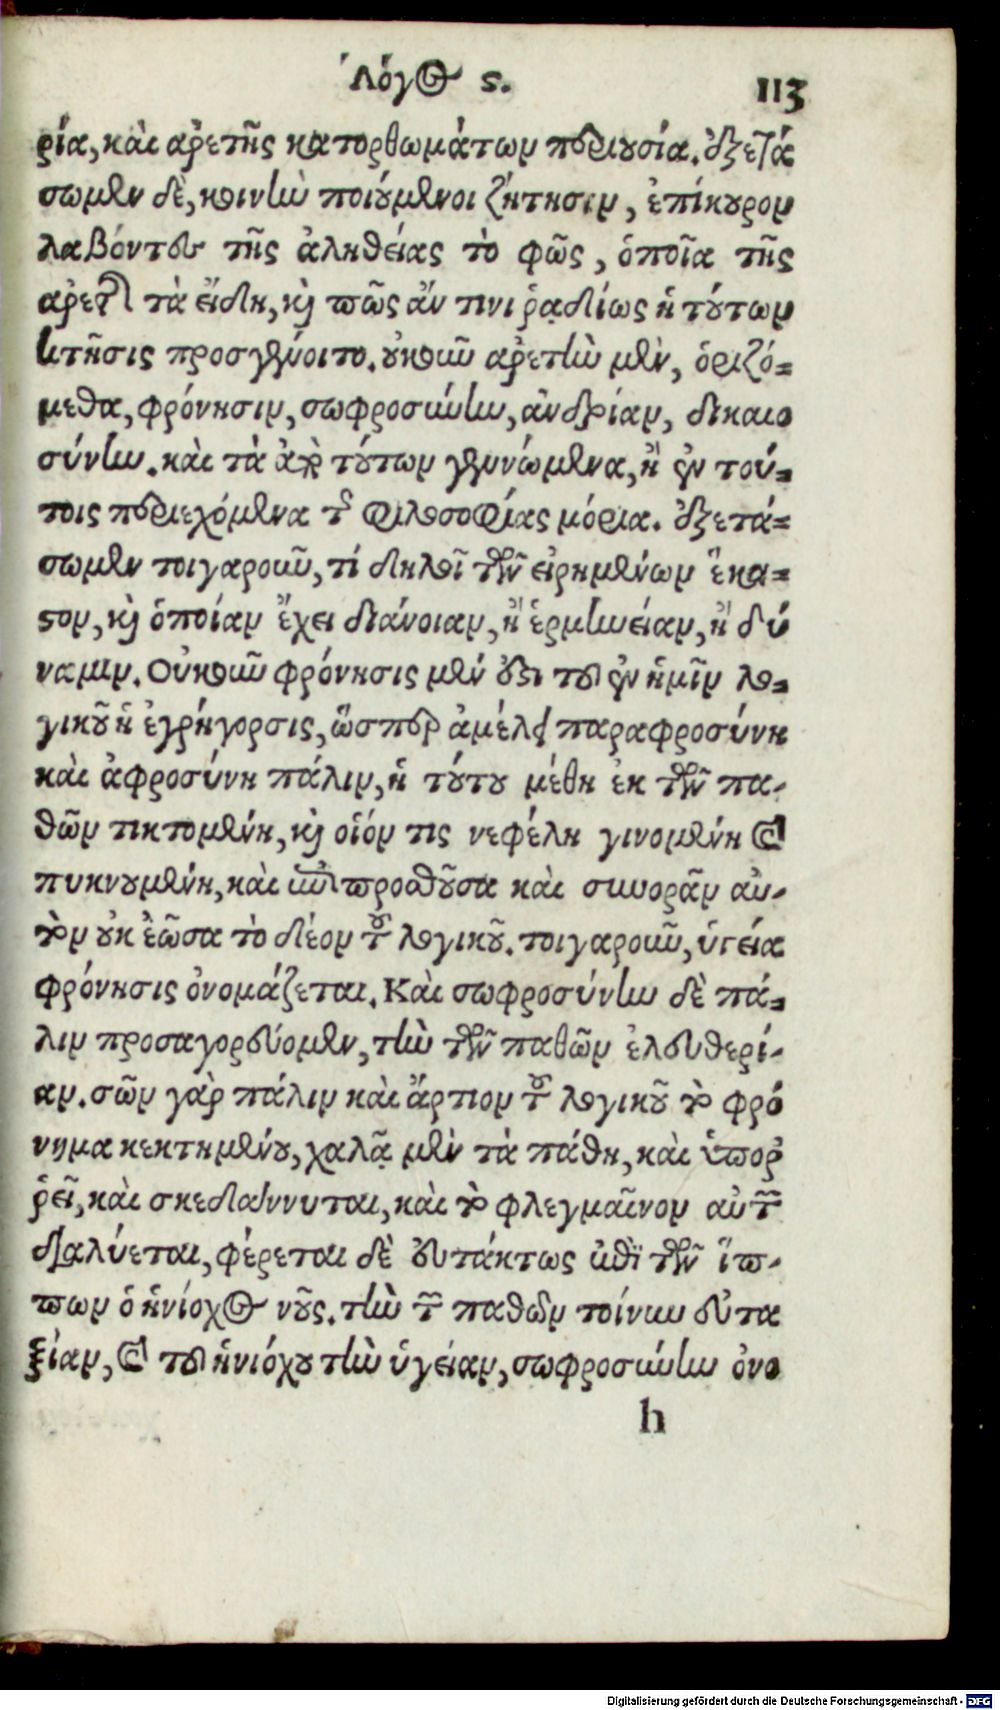 Λόγος ς. 113
ρία, καὶ ἀρετῆς κατορθωμάτων περιουσία. ἐξετά
σωμεν δὲ, κοινὴν ποιούμενοι ζήτησιν, ἐπίκουρον
λαβόντες τῆς ἀληθείας τὸ φῶς, ὁποῖα τῆς
ἀρετῆς τὰ εἴδη, καὶ πῶς ἄν τινι ῥᾳδίως ἡ τούτων
κτῆσις προσγένοιτο. οὐκοῦν ἀρετὴν μὲν, ὁριζό-
μεθα, φρόνησιν, σωφροσύνην, ἀνδρίαν, δικαιο
σύνην. καὶ τὰ ἀπὸ τούτων γεννώμενα, ἢ ἐν τού-
τοις περιεχόμενα τῆς φιλοσοφίας μόρια. ἐξετά-
σωμεν τοιγαροῦν, τί δηλοῖ τῶν εἰρημένων ἕκα-
στον, καὶ ὁποίαν ἔχει διάνοιαν, ἢ ἑρμηνείαν, ἢ δύ
ναμιν. Οὐκοῦν φρόνησις μέν ἐστι τοῦ ἐν ἡμῖν λο-
γικοῦ ἡ ἐγρήγορσις, ὥσπερ ἀμέλει παραφροσύνη
καὶ ἀφροσύνη πάλιν, ἡ τούτου μέθη ἐκ τῶν πα-
θῶν τικτομένη, καὶ οἷόν τις νεφέλη γινομένη καὶ
πυκνουμένη, καὶ ἐπιπροσθοῦσα καὶ συνορᾶν αὐ-
τὸν οὐκ ἐῶσα τὸ δέον τοῦ λογικοῦ. τοιγαροῦν, ὑγεία
φρόνησις ὀνομάζεται. Καὶ σωφροσύνην δὲ πά-
λιν προσαγορεύομεν, τὴν τῶν παθῶν ἐλευθερί-
αν. σῶν γὰρ πάλιν καὶ ἄρτιον τοῦ λογικοῦ τὸ φρό
νημα κεκτημένου, χαλᾷ μὲν τὰ πάθη, καὶ ὑπορ
ρεῖ, καὶ σκεδάννυται, καὶ τὸ φλεγμαῖνον αὐτῶν
διαλύεται, φέρεται δὲ εὐτάκτως ἐπὶ τῶν ἵπ-
πων ὁ ἡνίοχος νοῦς. τὴν τῶν παθῶν τοίνυν εὐτα
ξίαν, καὶ τοῦ ἡνιόχου τὴν ὑγείαν, σωφροσύνην ὀνο
h
Digitalisierung gefördert durch die Deutsche Forschungsgemeinschaft - DFG